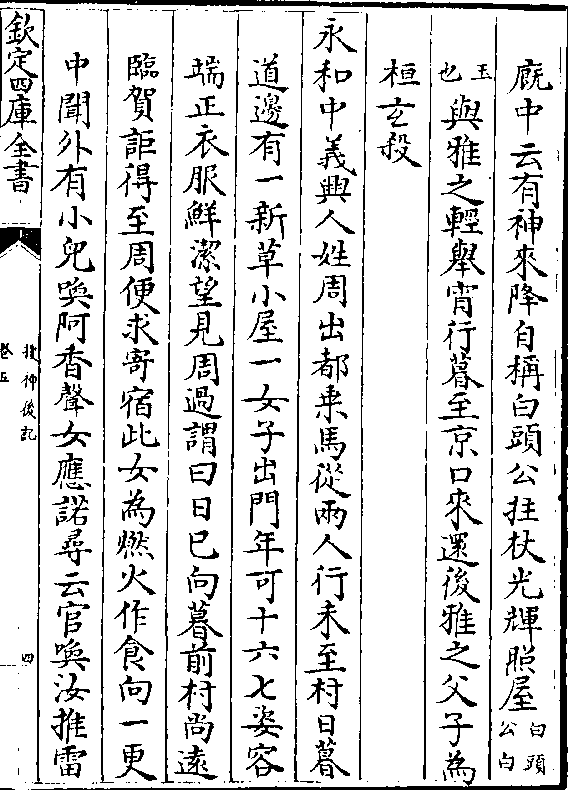 廐中云有神來降自稱白頭公拄杖光輝照屋白頭公白
玉也與雅之輕舉宵行暮至京口來還後雅之父子為
桓玄殺
永和中義興人姓周出都乗馬從兩人行未至村日暮
道邊有一新草小屋一女子出門年可十六七姿容
端正衣服鮮潔望見周過謂曰日已向暮前村尚遠
臨賀詎得至周便求寄宿此女為燃火作食向一更
中聞外有小兒喚阿香聲女應諾尋云官喚汝推雷
欽定四庫全書
搜神後記
卷五
四